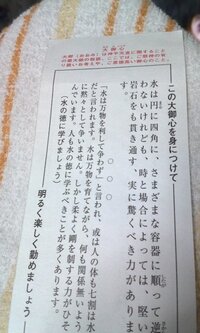 大御心
大御（おおみ）は神や天皇に関すること
この大御心を身につけて
水は円に四角に、さまざまな容器に順って逆
わないけれども、時と場合によっては、堅い
岩石をも貫き通す、実に驚くべき力がありま
○　○　○
「水は万物を利して争わず」と言われ、或は人の体も七割は水
だと言われます。水は万物を育てながら、何も関係無いよう
に黙々として争いません。しかし柔よく剛を制する力がひそ
んでいます。人も水の徳に学ぶべきことが多くあります。
（水の徳に学びましょう）
明るく楽しく勤めましょう